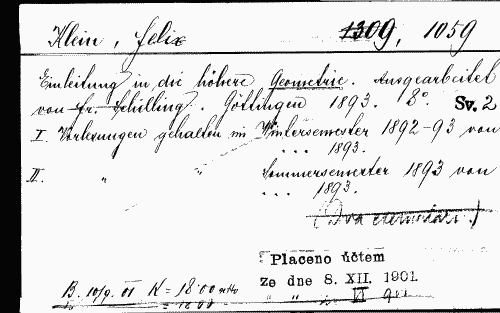 Klein, Felix 1309, 1059
Einleitung in die höhere Geometrie. Ausgearbeitet
von Fr. Schilling. Göttingen 1893. 8°. Sv. 2
I. Vorlesungen gehalten im Wintersemester 1892-93 von
. . . 1893.
II. " " Sommersemester 1893 von
. . . 1893.
(Dva exempláře.)
Placeno účtem
ze dne 8. XII. 1901.
" " VI
B. 10/9. 01 K = 18·00
= 18·00